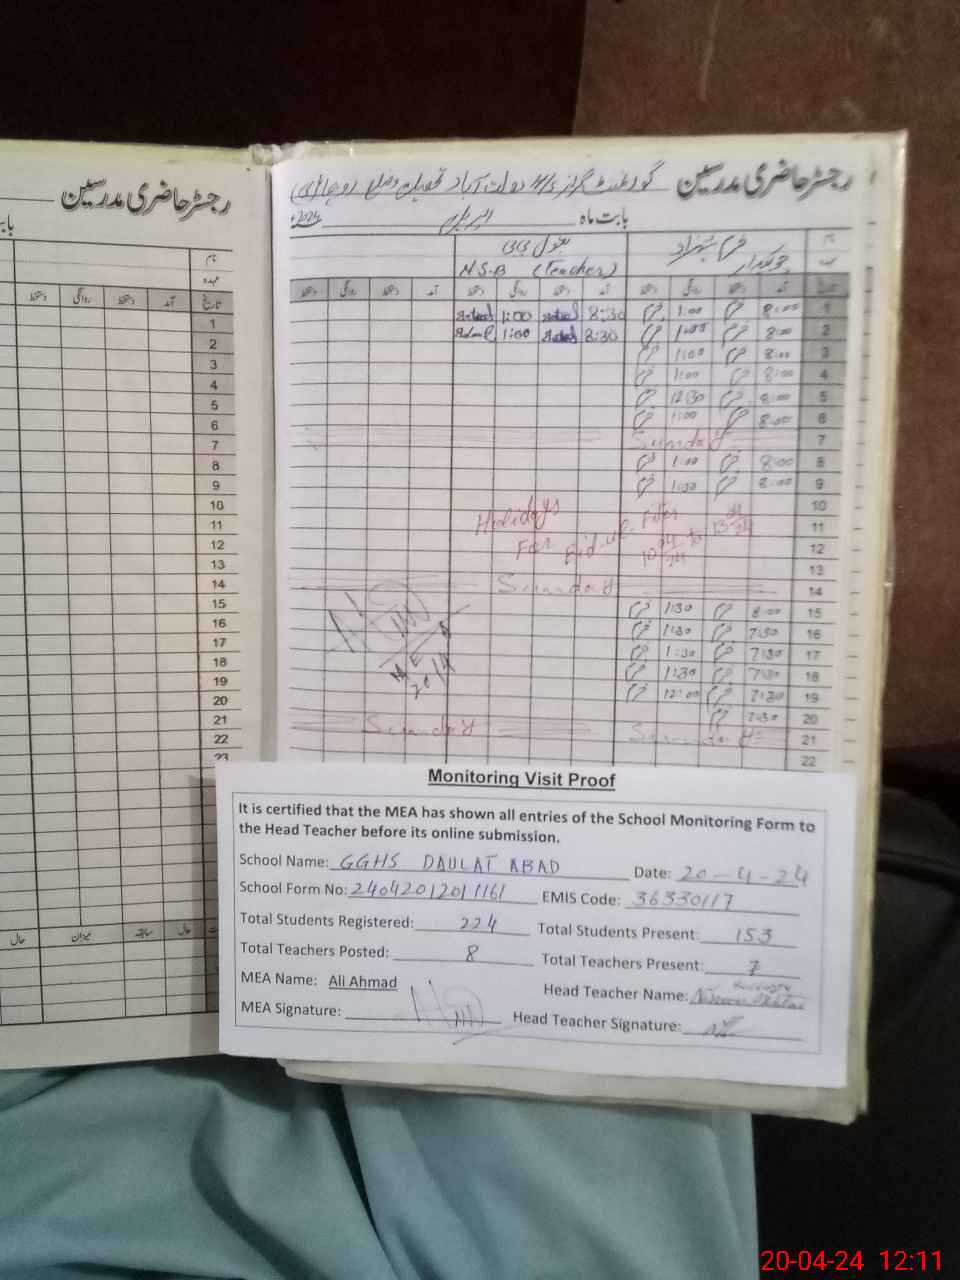 رجسٹر حاضری مدرسین
رجسٹر حاضری مدرسین گورنمنٹ گرلز ہائی سکول دولت آباد تحصیل و ضلع
بابت ماہ اپریل 2024ء
نام
عہدہ
چوکیدار
بتول بی بی
N.S.B (Teacher)
تاریخ آمد دستخط روانگی دستخط آمد دستخط روانگی دستخط آمد دستخط روانگی دستخط
تاریخ آمد دستخط روانگی دستخط
1 8:00 1:00 8:30 1:00
2 8:00 1:00 8:30 1:00
3 8:00 1:00
4 8:00 1:00
5 8:00 12:30
6 8:00 1:00
7 Sunday
8 8:00 1:00
9 8:00 1:00
10
11 Holidays
12 For Eid-ul-Fiter 10/04/24 to 13/04/24
13
14 Sunday
15 8:00 1:30
16 7:30 1:30
17 7:30 1:30
18 7:30 1:30
19 7:30 12:00
20 7:30
21 Sunday Sunday
22
MEA
20/4
1
2
3
4
5
6
7
8
9
10
11
12
13
14
15
16
17
18
19
20
21
22
23
حال سابقہ میزان حال
Monitoring Visit Proof
It is certified that the MEA has shown all entries of the School Monitoring Form to
the Head Teacher before its online submission.
School Name: GGHS DAULAT ABAD Date: 20-4-24
School Form No: 24042012011161 EMIS Code: 36330117
Total Students Registered: 224 Total Students Present: 153
Total Teachers Posted: 8 Total Teachers Present: 7
MEA Name: Ali Ahmad Head Teacher Name:
MEA Signature: Head Teacher Signature:
20-04-24 12:11